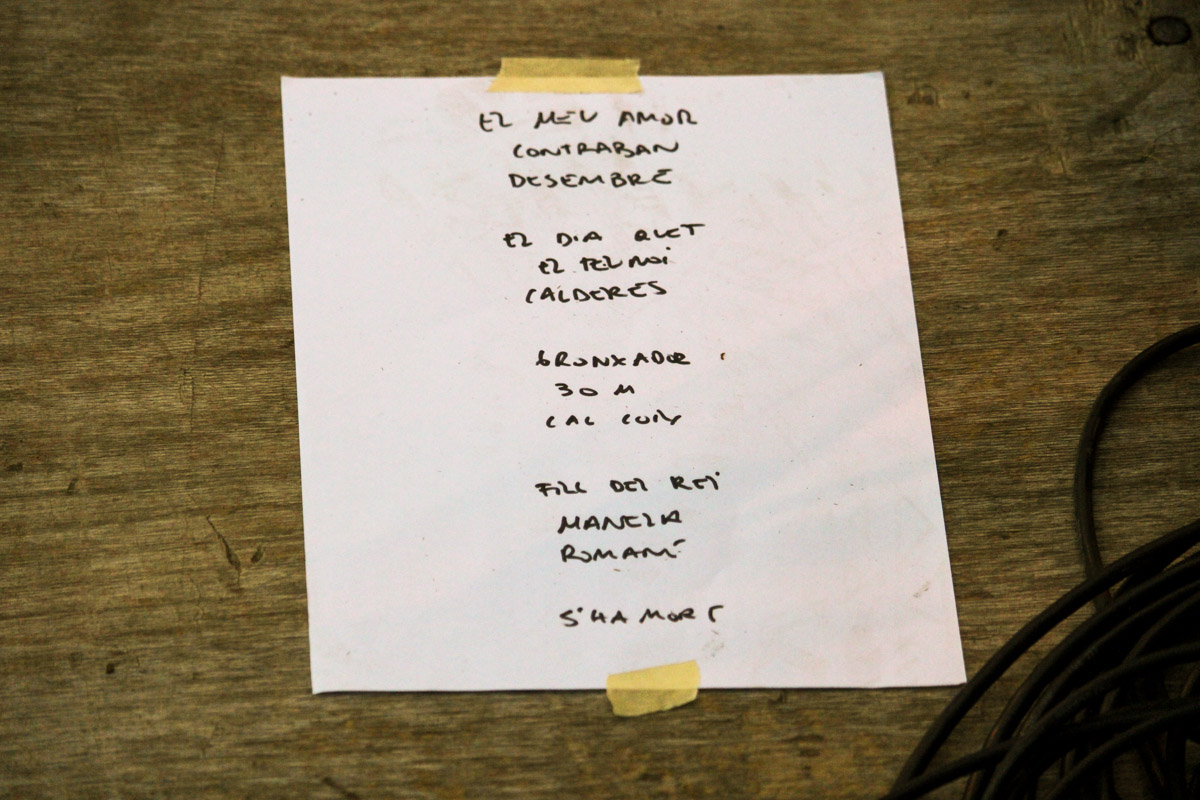 EL MEU AMOR
CONTRABAN
DESEMBRE
EL DIA QUET
EL PEL NOI
CALDERES
GRONXADOR
30 M
CAL
FILL DEL REI
MANELA
ROMANÍ
S'HA MORT